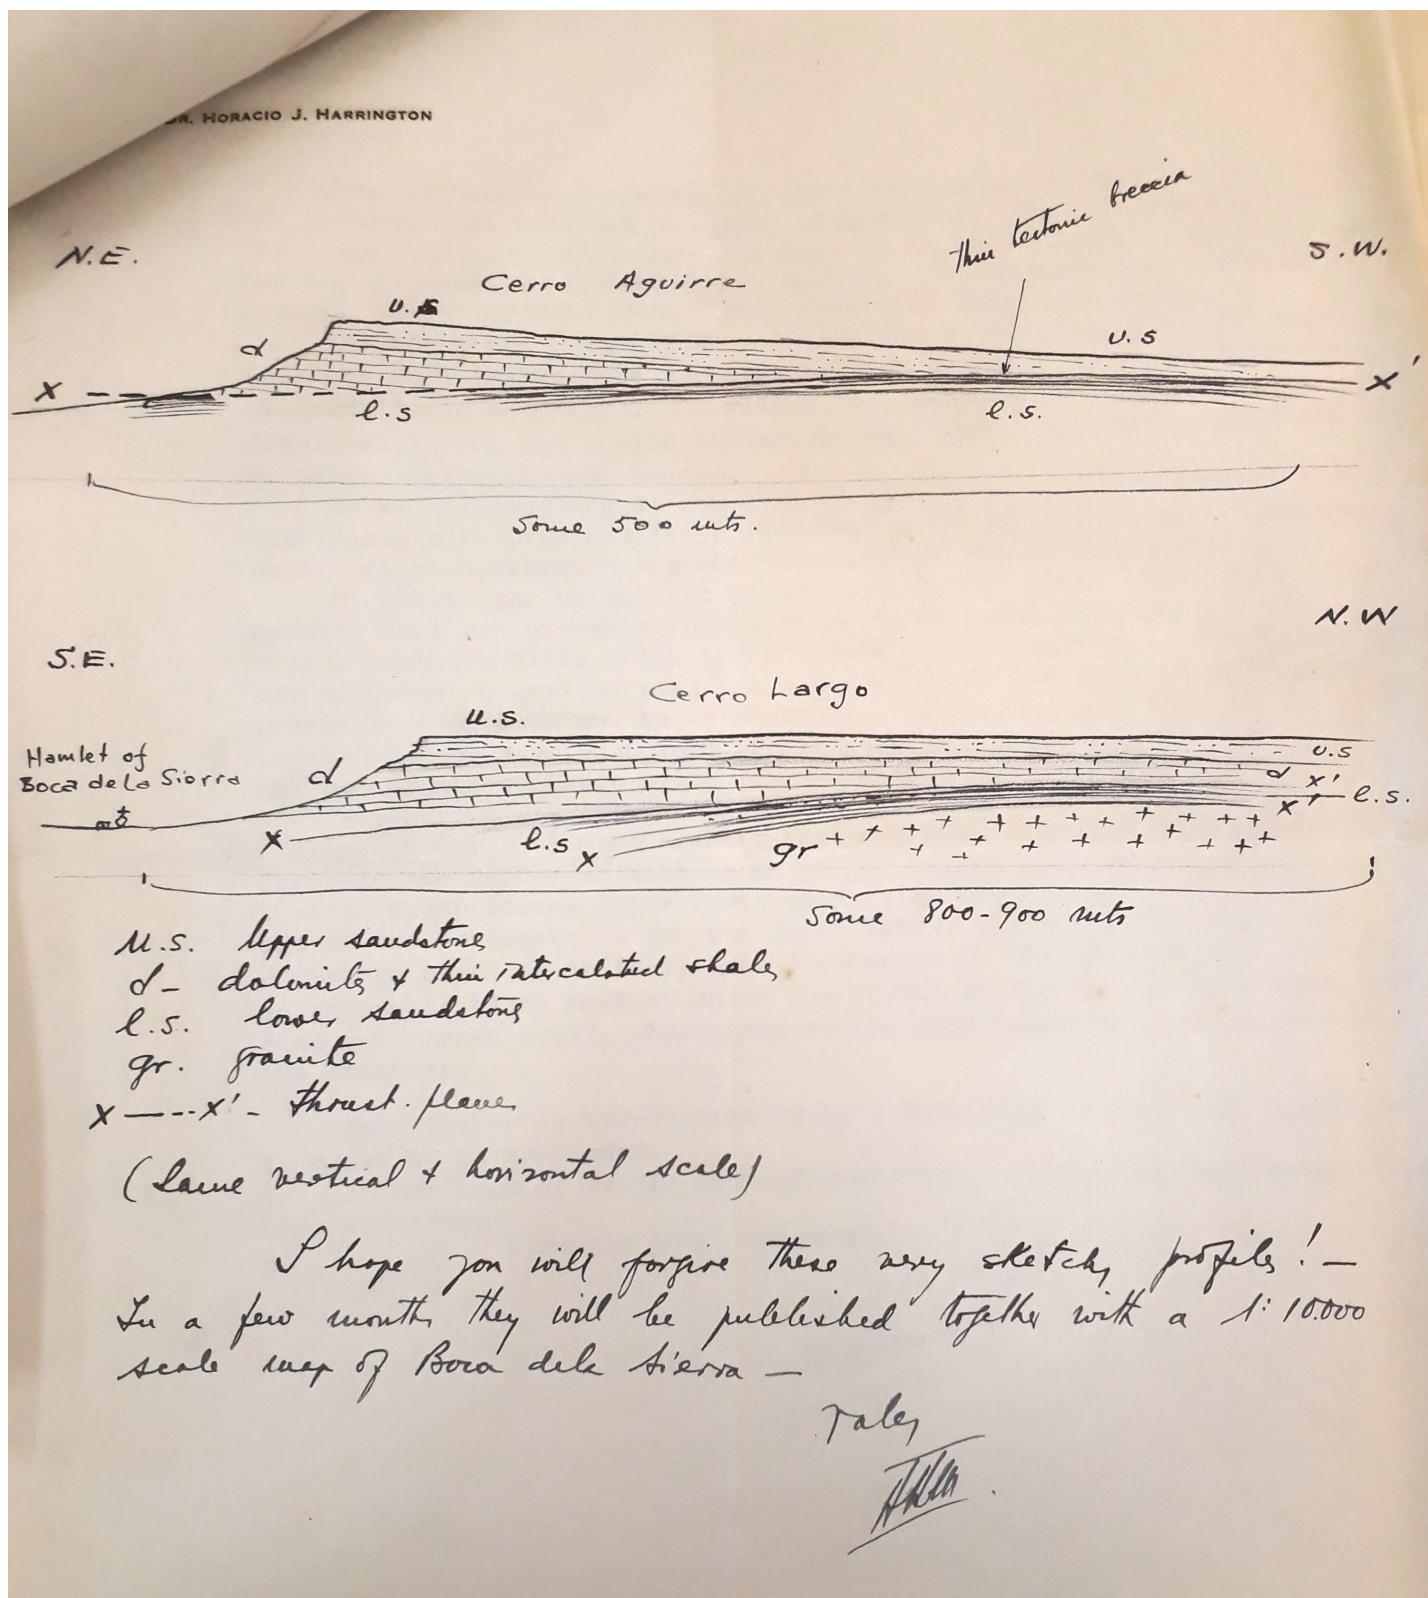 DR. HORACIO J. HARRINGTON
thin tectonic breccia
N.E.
S.W.
Cerro Aguirre
U.S
d
U.S
X
X'
l.s
l.s.
Some 500 mts.
N.W
S.E.
Cerro Largo
U.S.
Hamlet of
Boca de la Sierra
d
U.S
d
X'
X'
l.s.
X
l.s
X
gr
Some 800-900 mts
U.S. Upper sandstones
d - dolomites & thin intercalated shales
l.s. lower sandstones
gr. granite
X ---- X' - thrust. planes
(Same vertical & horizontal scale)
I hope you will forgive these very sketchy profiles! -
In a few months they will be published together with a 1:10.000
scale map of Boca de la Sierra -